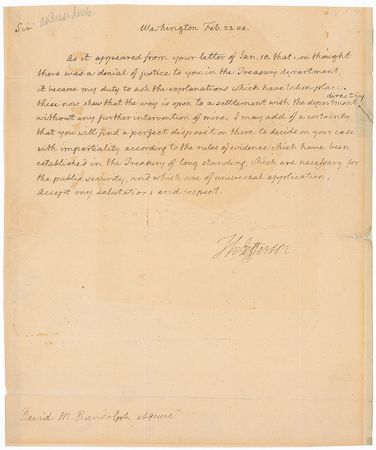 Sir
Washington Feb. 23. 08.
As it appeared from your letter of Jan. 10. that you thought
there was a denial of justice to you in the Treasury department,
it became my duty to ask the explanations which have taken place.
these now shew that the way is open to a settlement with the department directly
without any further intervention of mine. I may add of a certainty
that you will find a perfect disposition there to decide on your case
with impartiality according to the rules of evidence which have been
established in the Treasury of long standing, which are necessary for
the public security, and which are of universal application.
Accept my salutations and respect.
Th: Jefferson
David M. Randolph esquire